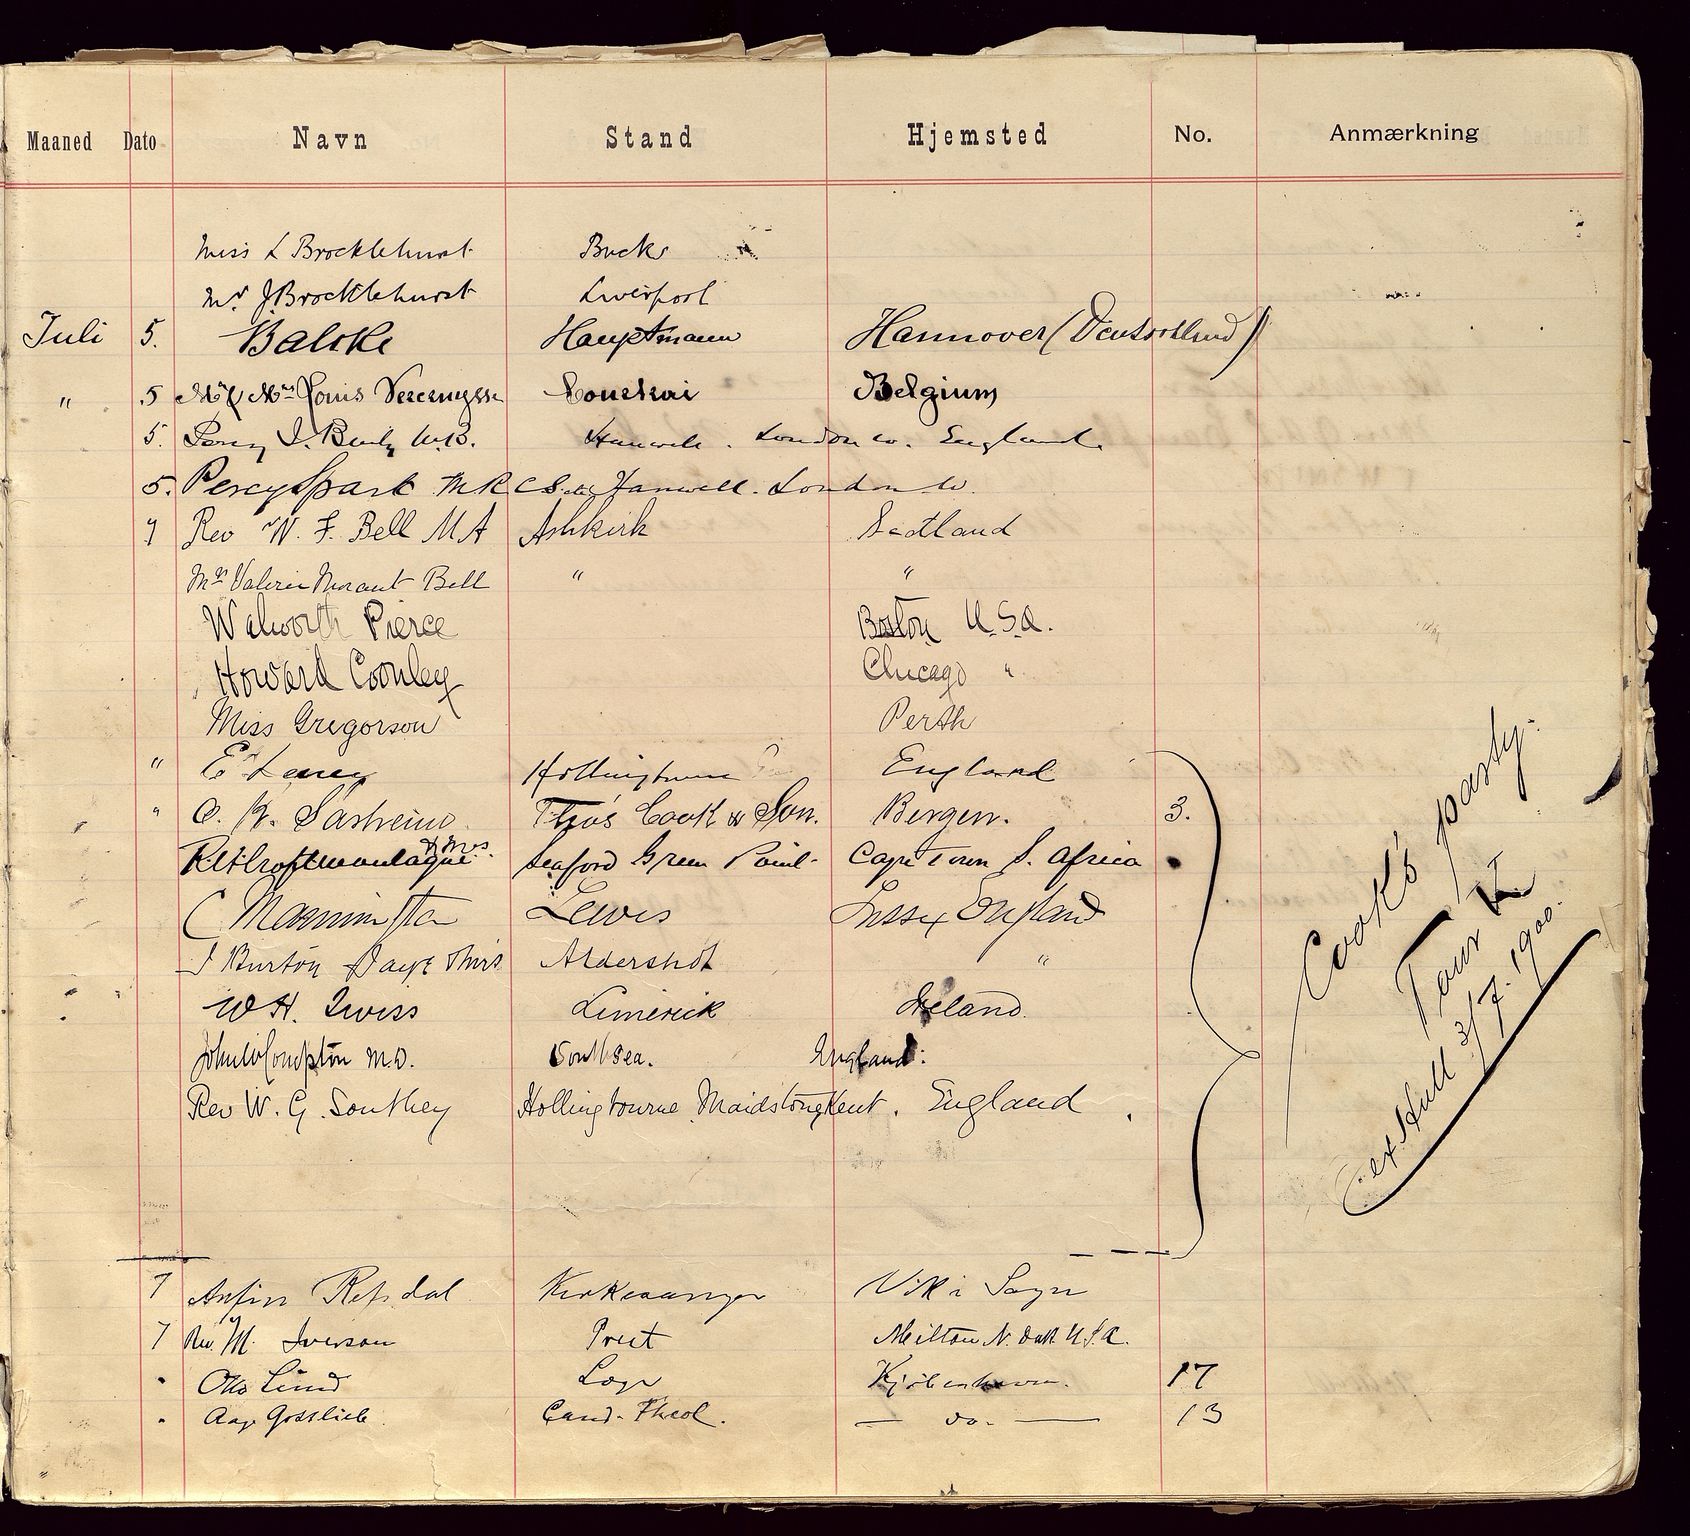 Maaned Dato Navn Stand Hjemsted No. Anmærkning
Miss L Brocklehurst Bucks
Mr J Brocklehurst Liverpool
Juli 5. Balcke Hauptmann Hannover (Deutschland)
" 5 Mr & Mrs Louis Vercruysse Courtrai Belgium
5. Percy J. Baily M.B. Hanwell. London W. England.
5. Percy Spark MRCS. Hanwell. London W.
7 Rev W. F. Bell MA Ashkirk Scotland
Mrs Valerie Morant Bell " "
Walworth Pierce Boston U.S.A.
Howard Coonley Chicago "
Miss Gregorson Perth
" E Hollingbourne England
" O. K. Thos Cook & Son. Bergen. 3.
& Mrs. Seaford Green Point Cape Town S. Africa
C Lewis Sussex England
J Burton Aldershot "
W H. Twiss Limerick Ireland.
John W Compton M.D. Southsea. England.
Rev W. G. Southey Hollingbourne Maidstone Kent. England
Cook's party.
Tour
ex Hull 3/7. 1900.
7 Anfin Refsdal Vik i Sogn
7 Rev. M. Iverson Prest Milton N. Dak U.S.A.
" Otto Lund Kjøbenhavn. 17
" Aage Gottlieb Cand. Theol. — do. — 13